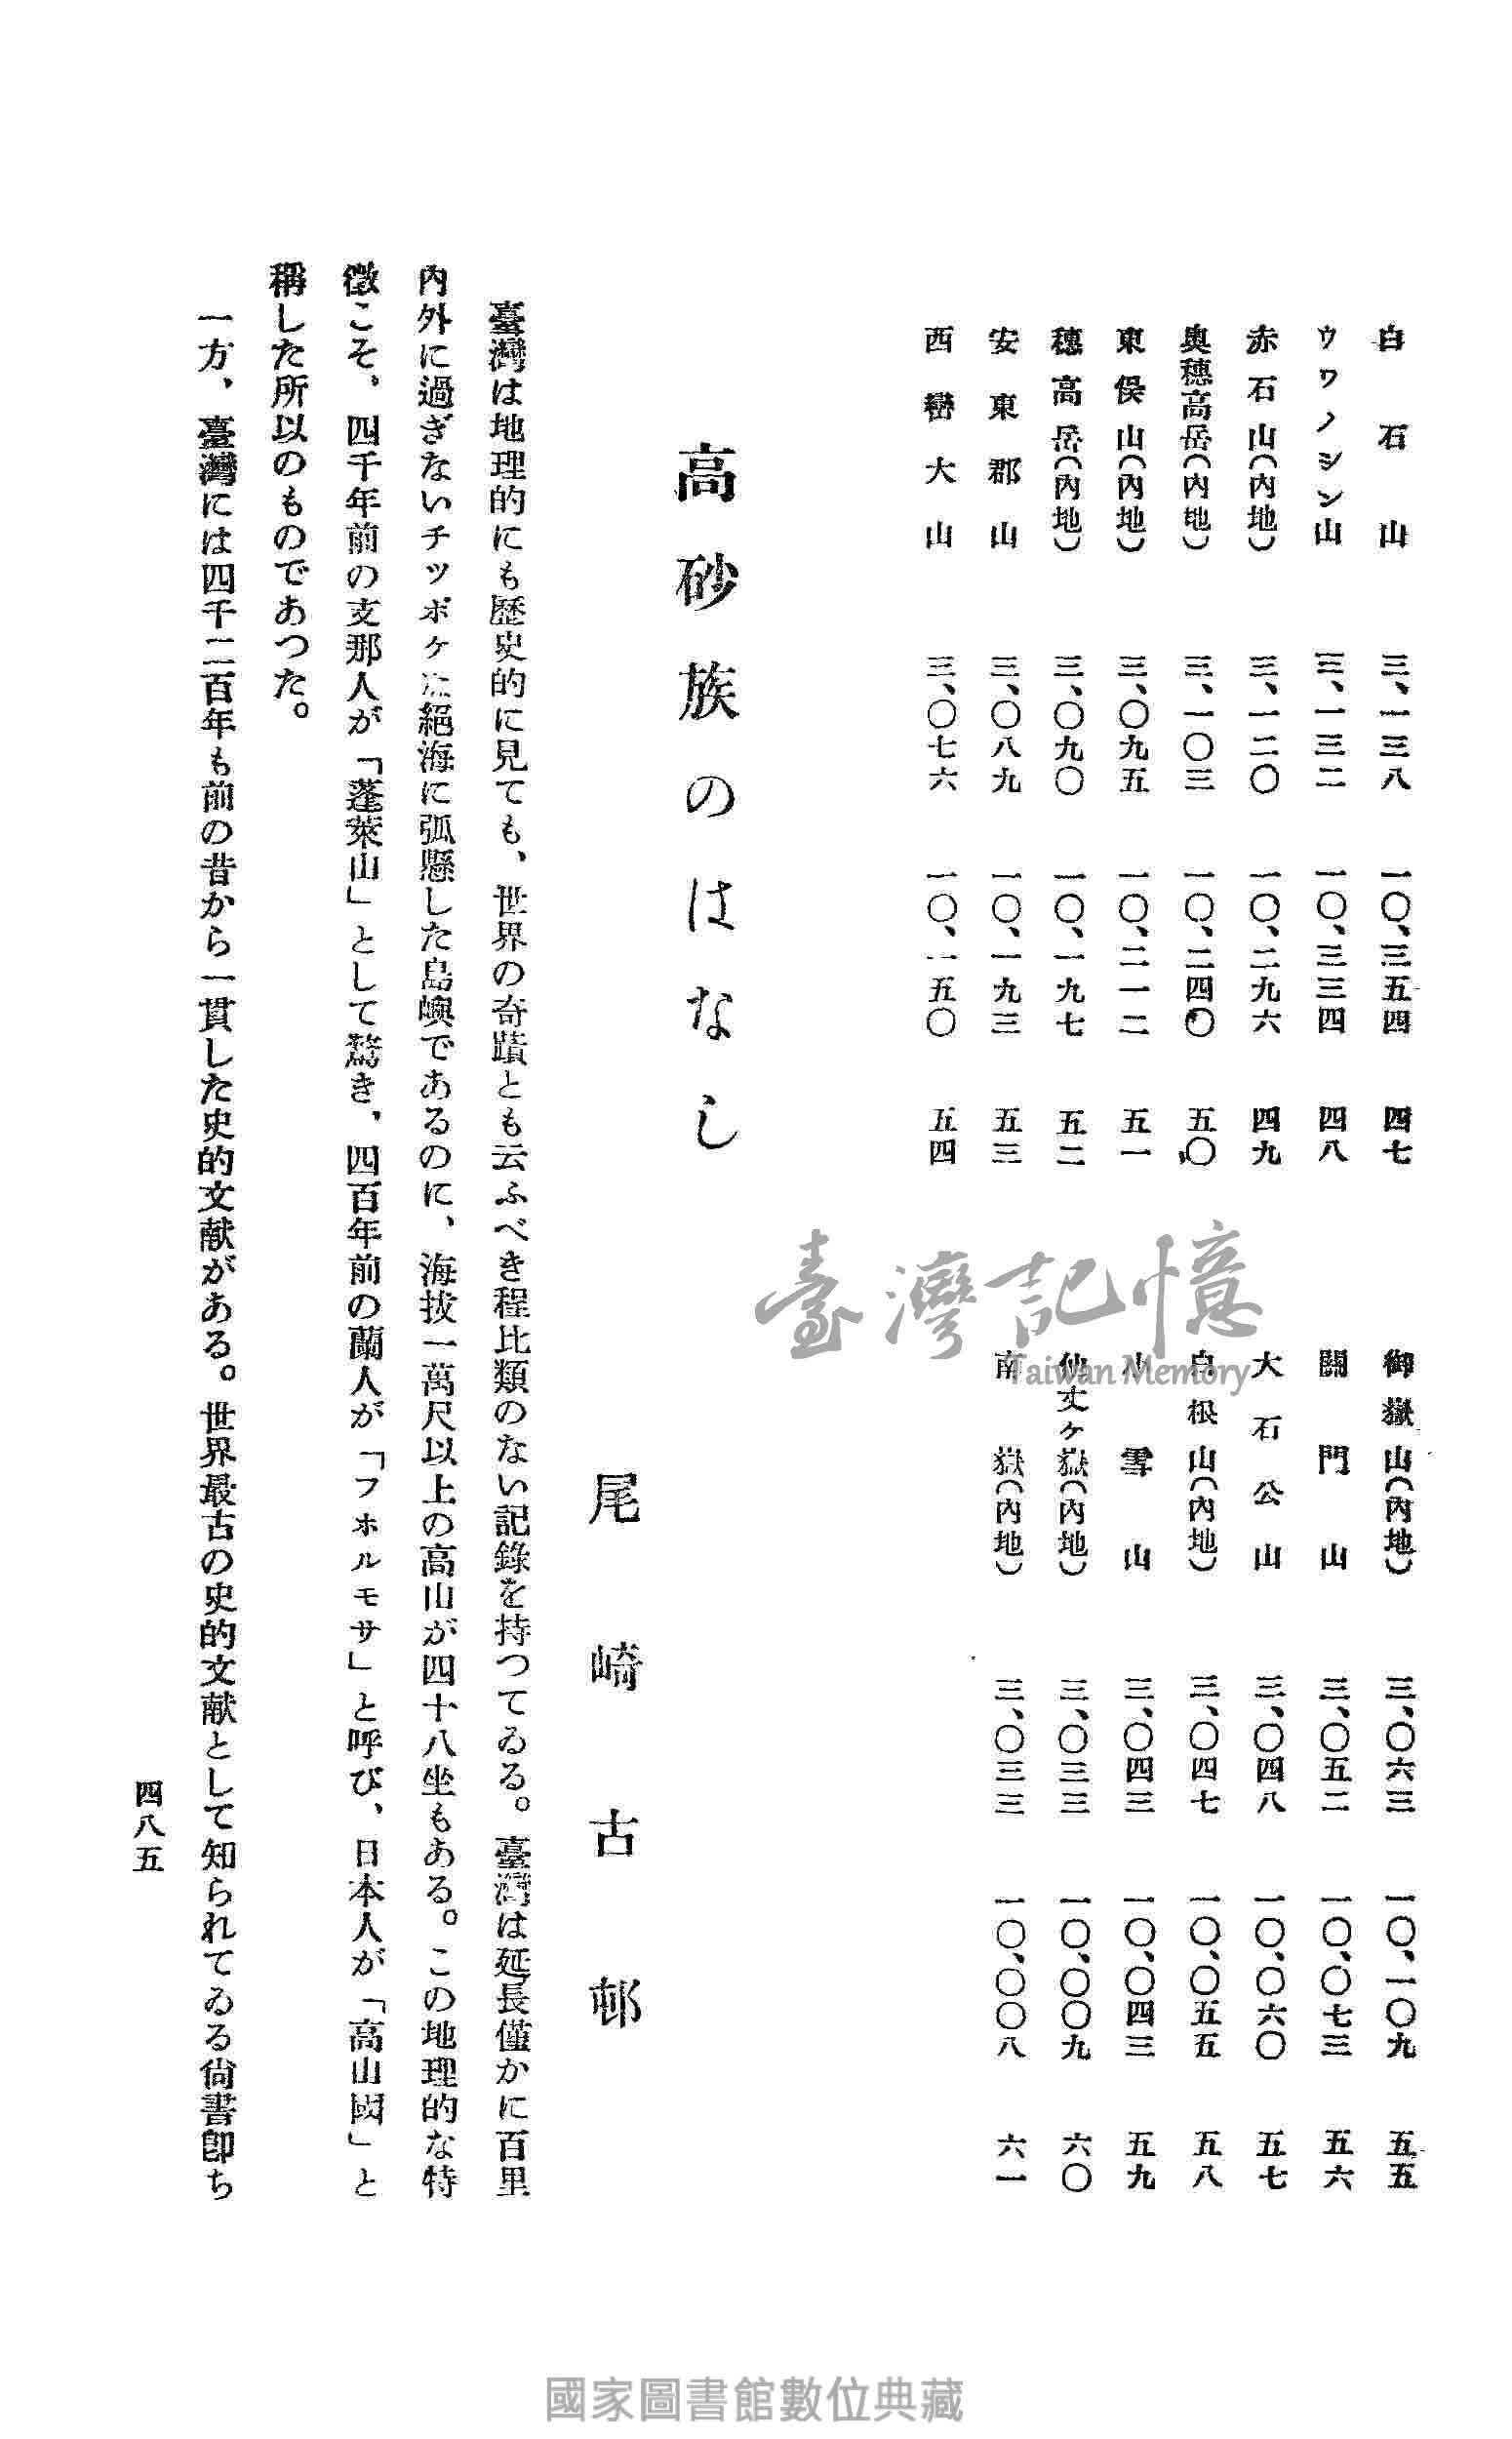 白石山 三、一三八 一〇、三五四 四七
ウワノシン山 三、一三二 一〇、三三四 四八
赤石山(內地) 三、一二〇 一〇、二九六 四九
奥穗高岳(內地) 三、一〇三 一〇、二四〇 五〇
東俣山(內地) 三、〇九五 一〇、二一二 五一
穗高岳(內地) 三、〇九〇 一〇、一九七 五二
安東郡山 三、〇八九 一〇、一九三 五三
西巒大山 三、〇七六 一〇、一五〇 五四
御嶽山(內地) 三、〇六三 一〇、一〇九 五五
關門山 三、〇五二 一〇、〇七三 五六
大石公山 三、〇四八 一〇、〇六〇 五七
白根山(內地) 三、〇四七 一〇、〇五五 五八
小雪山 三、〇四三 一〇、〇四三 五九
仙丈ヶ嶽(內地) 三、〇三三 一〇、〇〇九 六〇
南嶽(內地) 三、〇三三 一〇、〇〇八 六一
高砂族のはなし
尾崎古邨
臺灣は地理的にも歷史的に見ても、世界の奇蹟とも云ふべき程比類のない記錄を持つてゐる。臺灣は延長僅かに百里
內外に過ぎないチツポケな絕海に弧懸した島嶼であるのに、海拔一萬尺以上の高山が四十八坐もある。この地理的な特
徵こそ、四千年前の支那人が「蓬萊山」として驚き、四百年前の蘭人が「フホルモサ」と呼び、日本人が「高山國」と
稱した所以のものであつた。
一方、臺灣には四千二百年も前の昔から一貫した史的文献がある。世界最古の史的文献として知られてゐる尙書卽ち
四八五
臺灣記憶
Taiwan Memory
國家圖書館數位典藏